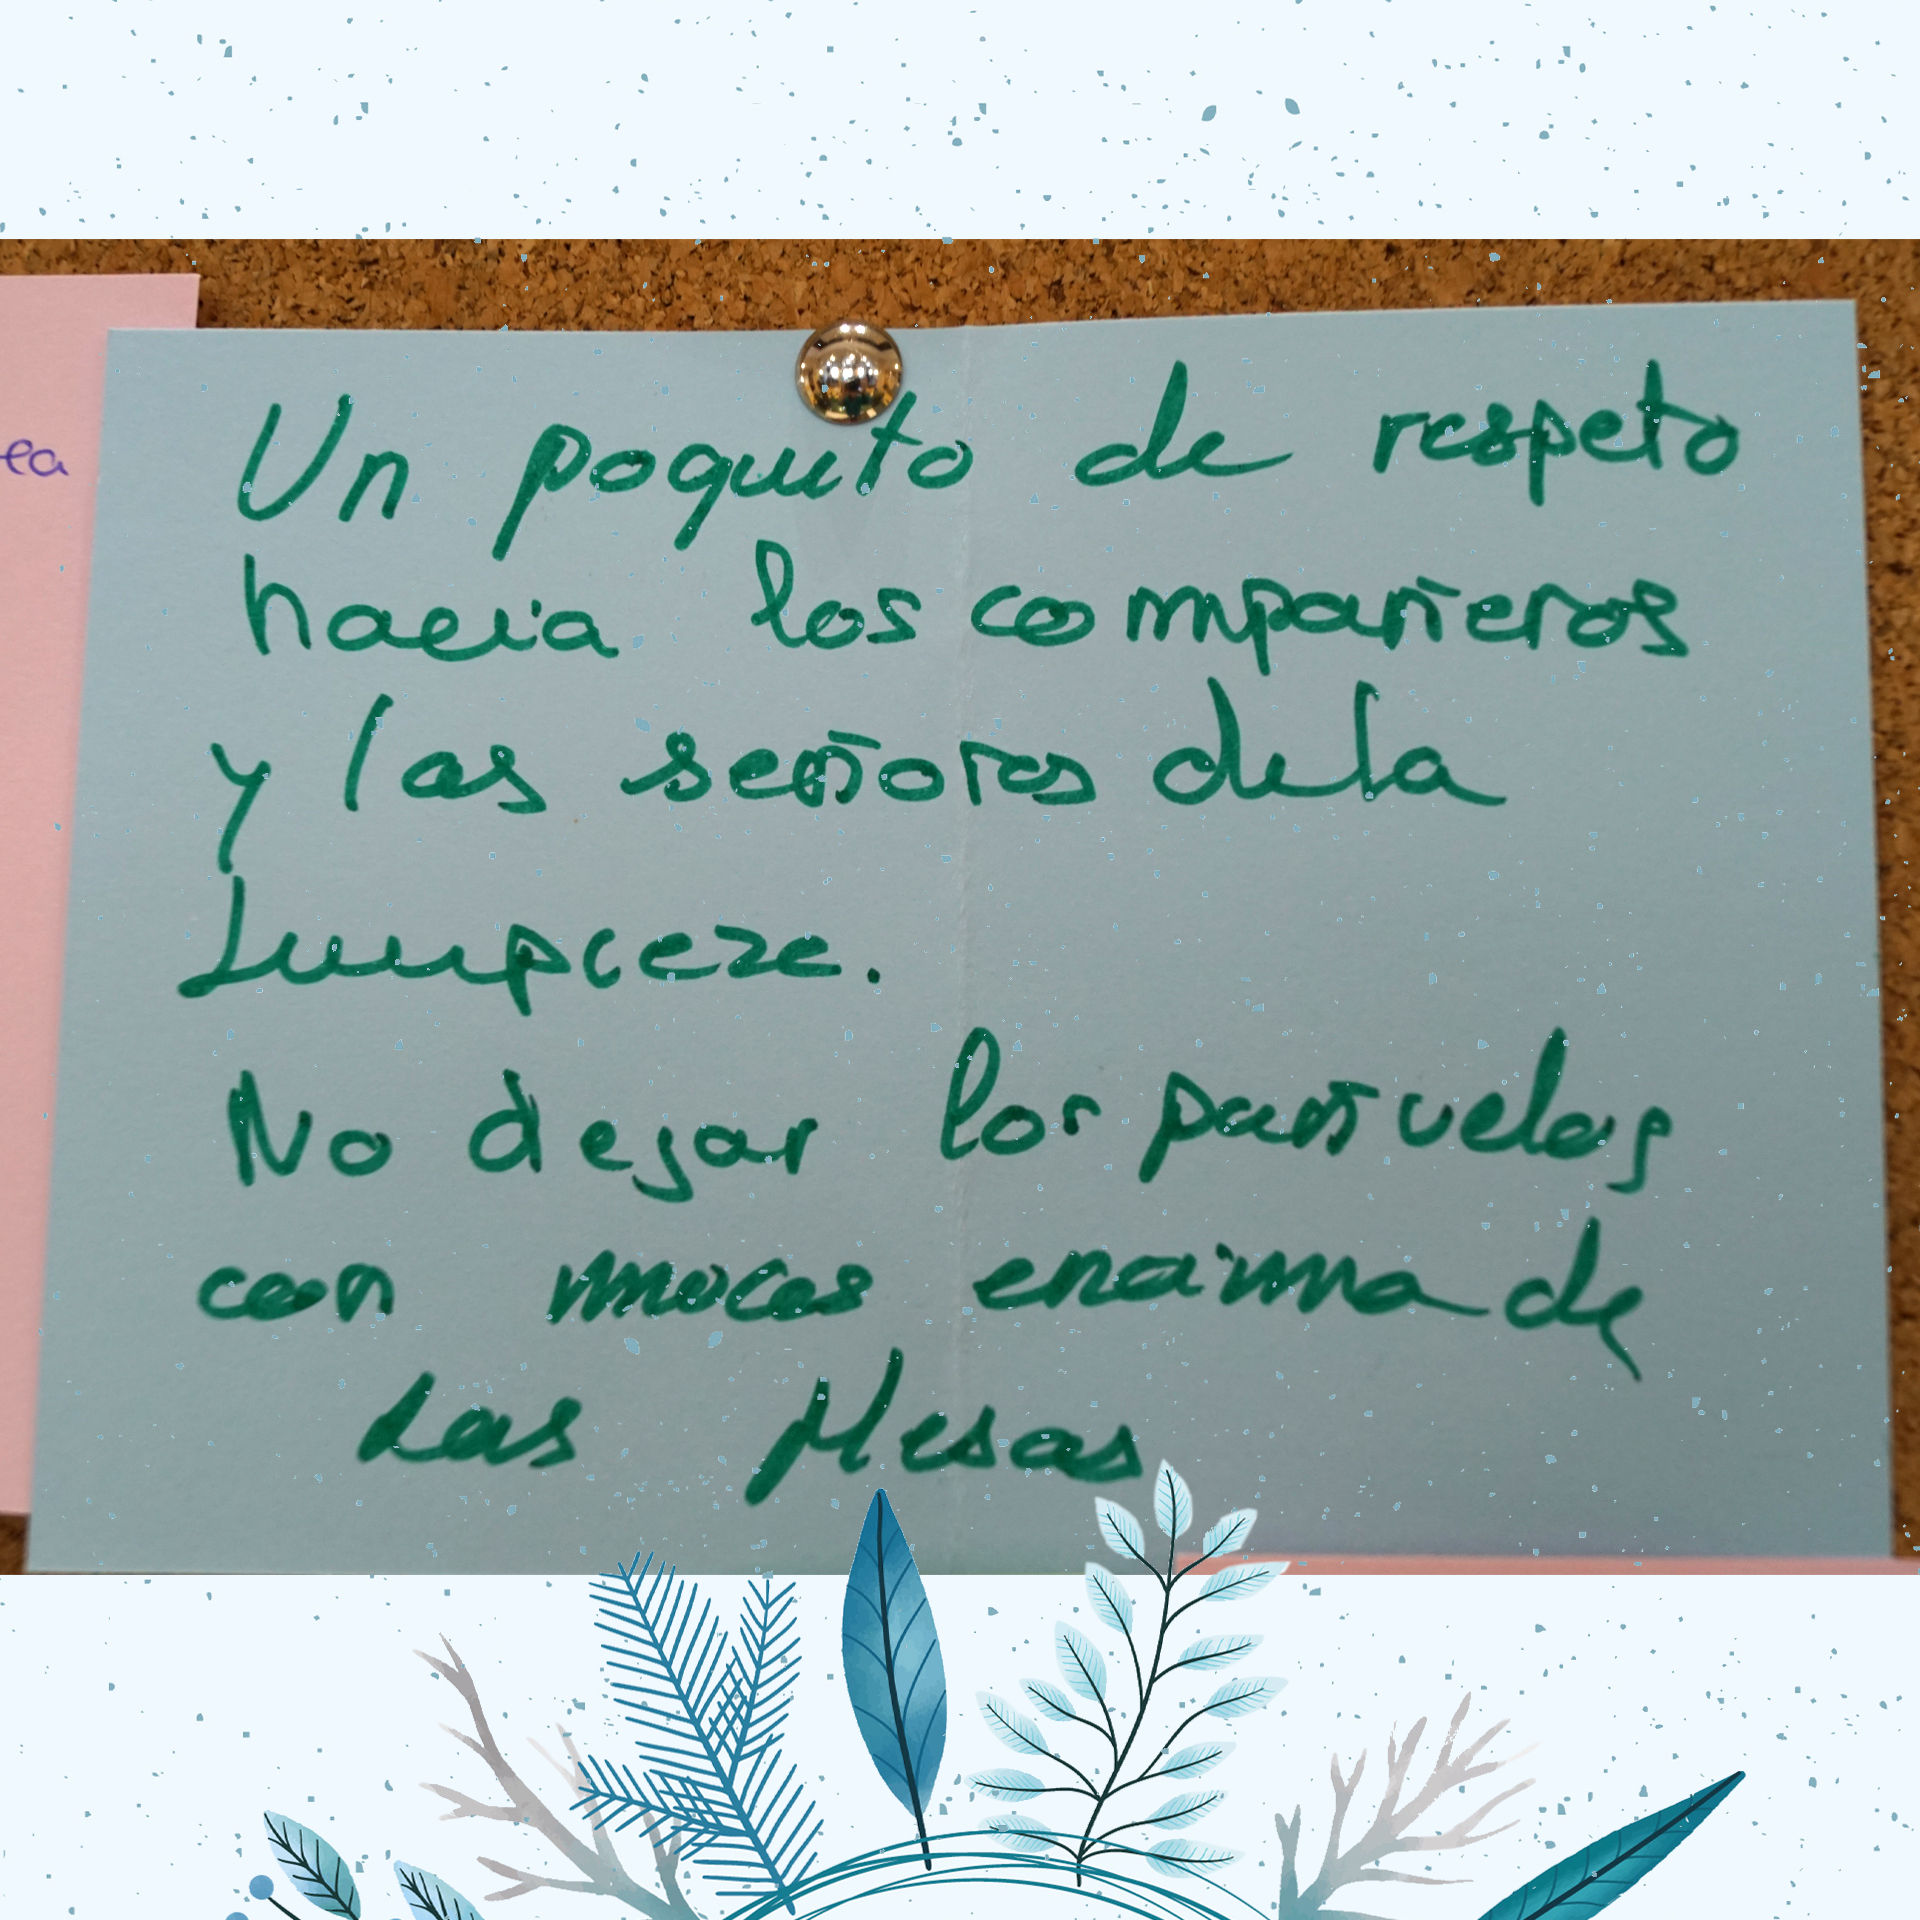 ea
Un poquito de respeto
hacia los compañeros
y las señoras de la
Limpieza.
No dejar los pañuelos
con mocos encima de
Las Mesas